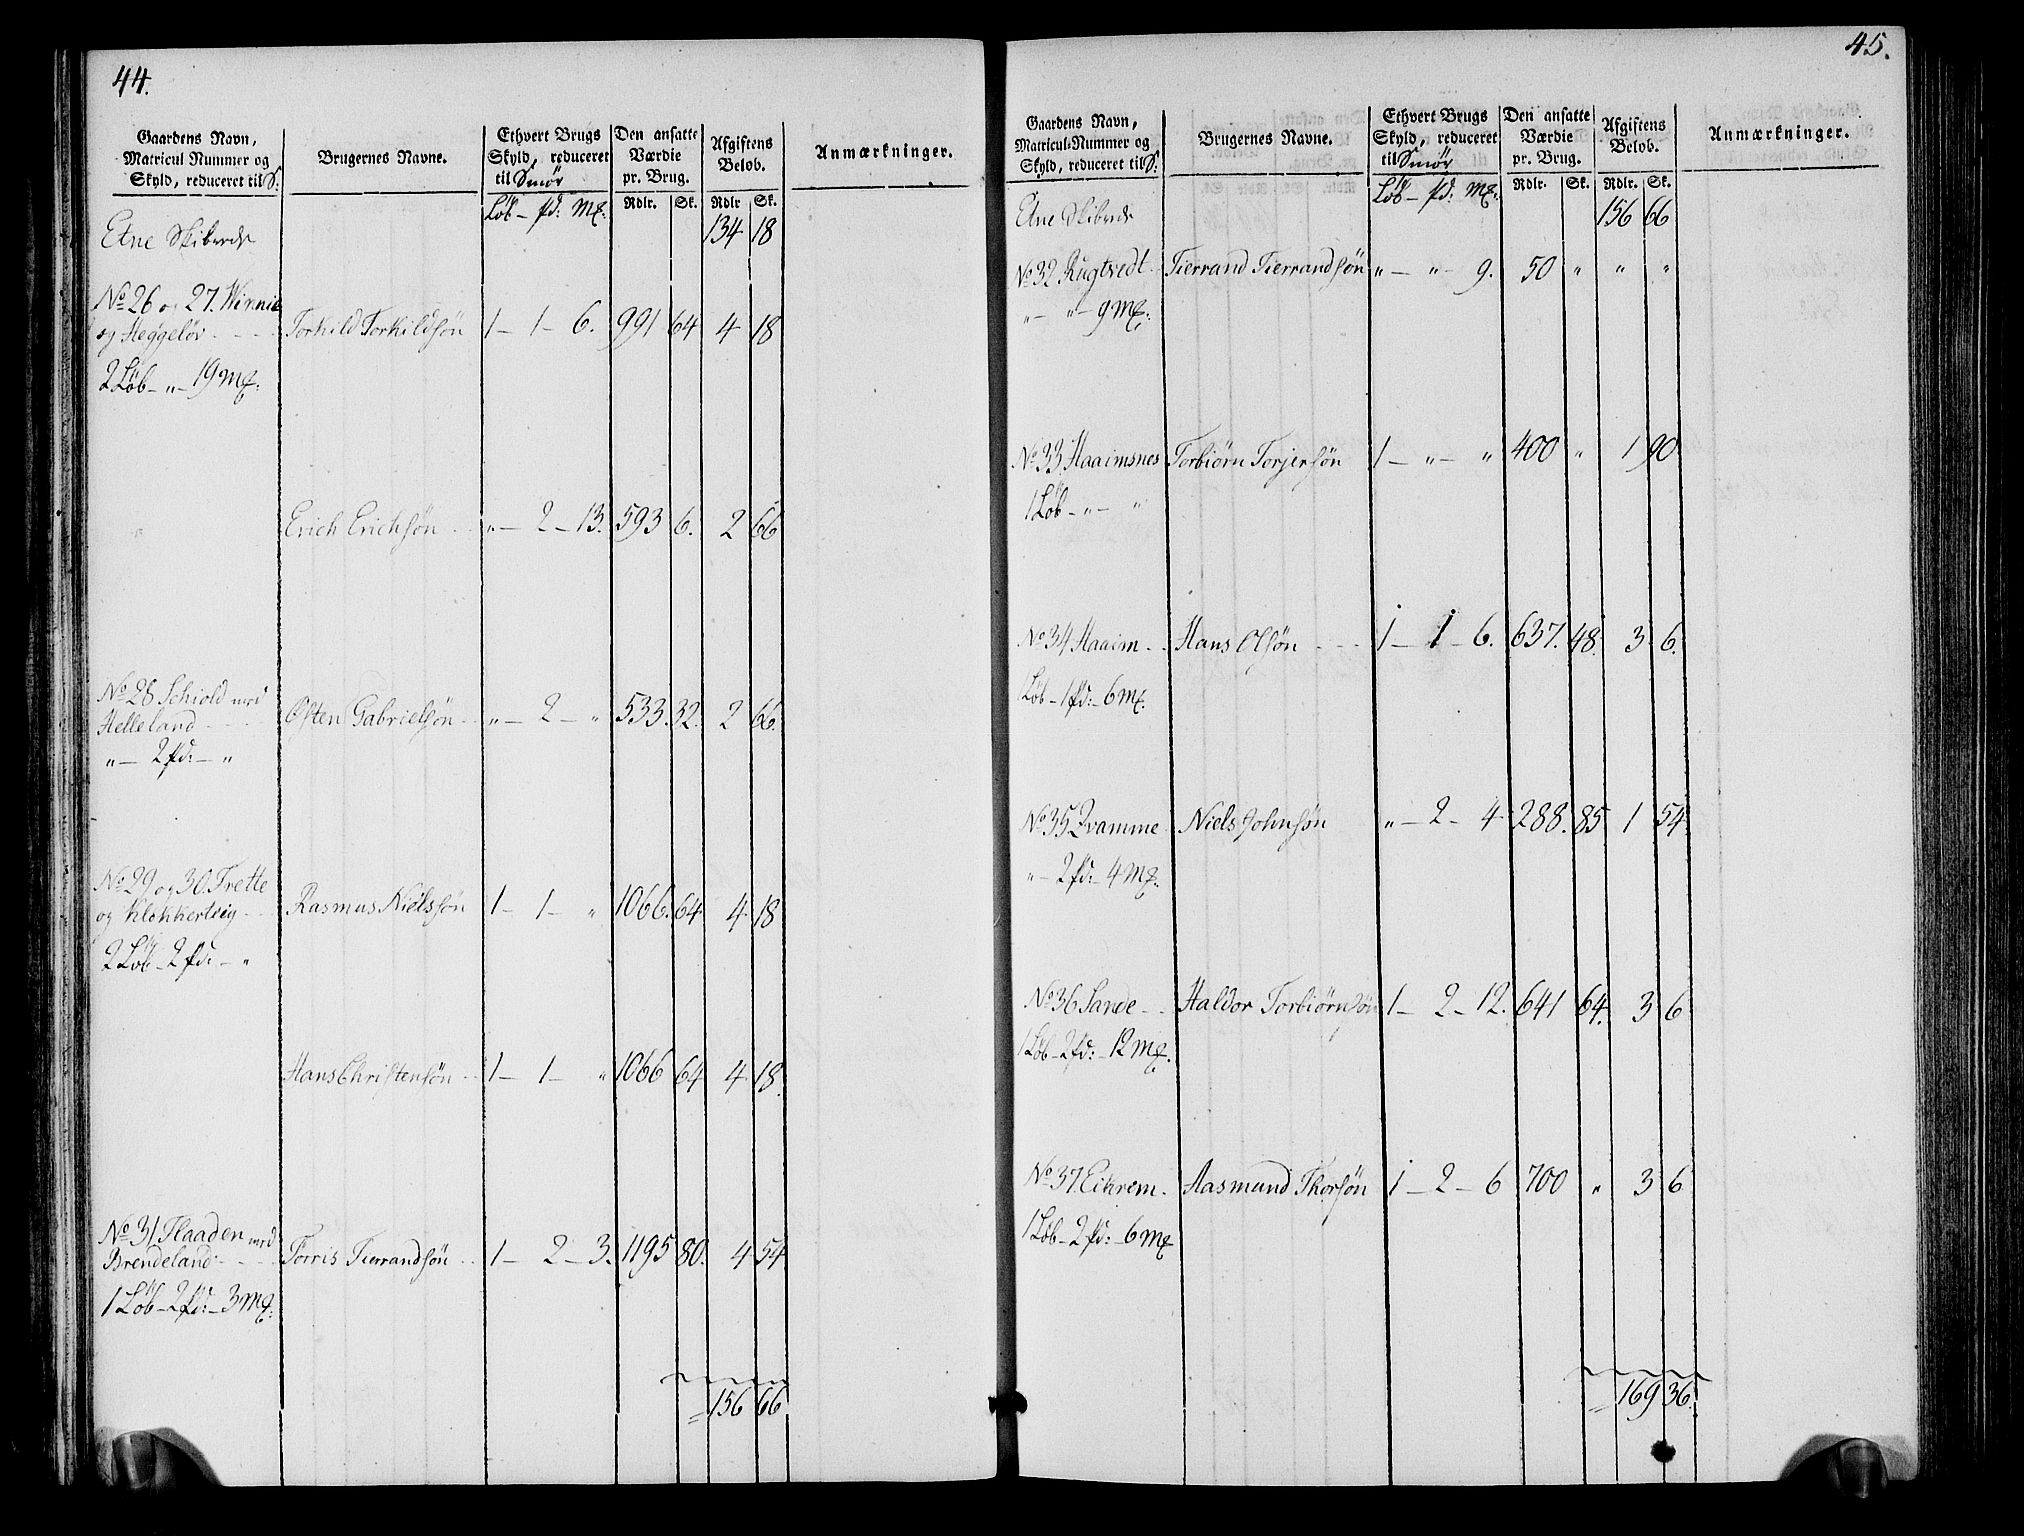 44.
Gaardens Navn, Matricul Nummer og Skyld, reduceret til S: | Brugernes Navne. | Ethvert Brugs Skyld, reduceret til Smør | Den ansatte Værdie pr. Brug. | Afgiftens Beløb. | Anmærkninger.
Løb — pd: Mk: | Rdlr. | Sk. | Rdlr | Sk.
Etne Skibrede 134 18
No 26 og 27. Winnie
og Heggeløv - - - Torkild Torkildsøn 1 — 1 — 6. 991 64 4 18
2 Løb — „ — 19 Mk:
Erich Erichsøn - - „ — 2 — 13. 593 6. 2 66
No 28 Schiold med
Helleland - - - Østen Gabrielsøn - „ — 2 — „ 533. 32. 2 66.
„ — 2 pd: — „
No 29 og 30. Trette
og Klokkerteig - - Rasmus Nielssøn 1 — 1 — „ 1066. 64 4 18
2 Løb — 2 pd: — „
Hans Christensøn - - 1 — 1 — „ 1066 64 4 18.
No 31 Flaaden med
Brendeland - - - Torris Tierrandsøn - - 1 — 2 — 3. 1195 80. 4 54
1 Løb — 2 pd: — 3 Mk:
= 156 66
45.
Gaardens Navn, Matricul-Nummer og Skyld, reduceret til S: | Brugernes Navne. | Ethvert Brugs Skyld, reduceret til Smør | Den ansatte Værdie pr. Brug. | Afgiftens Beløb. | Anmærkninger.
Løb — pd: Mk: | Rdlr. | Sk. | Rdlr. | Sk.
Etne Skibrede 156 66
No 32 Rugtvedt - Tierrand Tierrandsøn „ — „ — 9. 50 „ „ „
„ — „ — 9 Mk:
No 33 Haaimsnes Torbiørn Torjersøn 1 — „ — „ 400 „ 1 90
1 Løb — „ — „
No 34 Haaim - - Hans Olsøn - - - 1 — 1 — 6. 637. 48. 3 6.
1 Løb — 1 pd: — 6 Mk.
No 35 Qvamme - Niels Johnsøn „ — 2 — 4 288. 85 1 54
„ — 2 pd: — 4 Mk:
No 36 Sande - - Haldor Torbiørnsøn 1 — 2 — 12. 641 64. 3 6
1 Løb — 2 pd: — 12 Mk.
No 37. Eikrem. - Aasmund Thorsøn 1 — 2 — 6 700 „ 3 6
1 Løb — 2 pd: — 6 Mk
= 169 36.